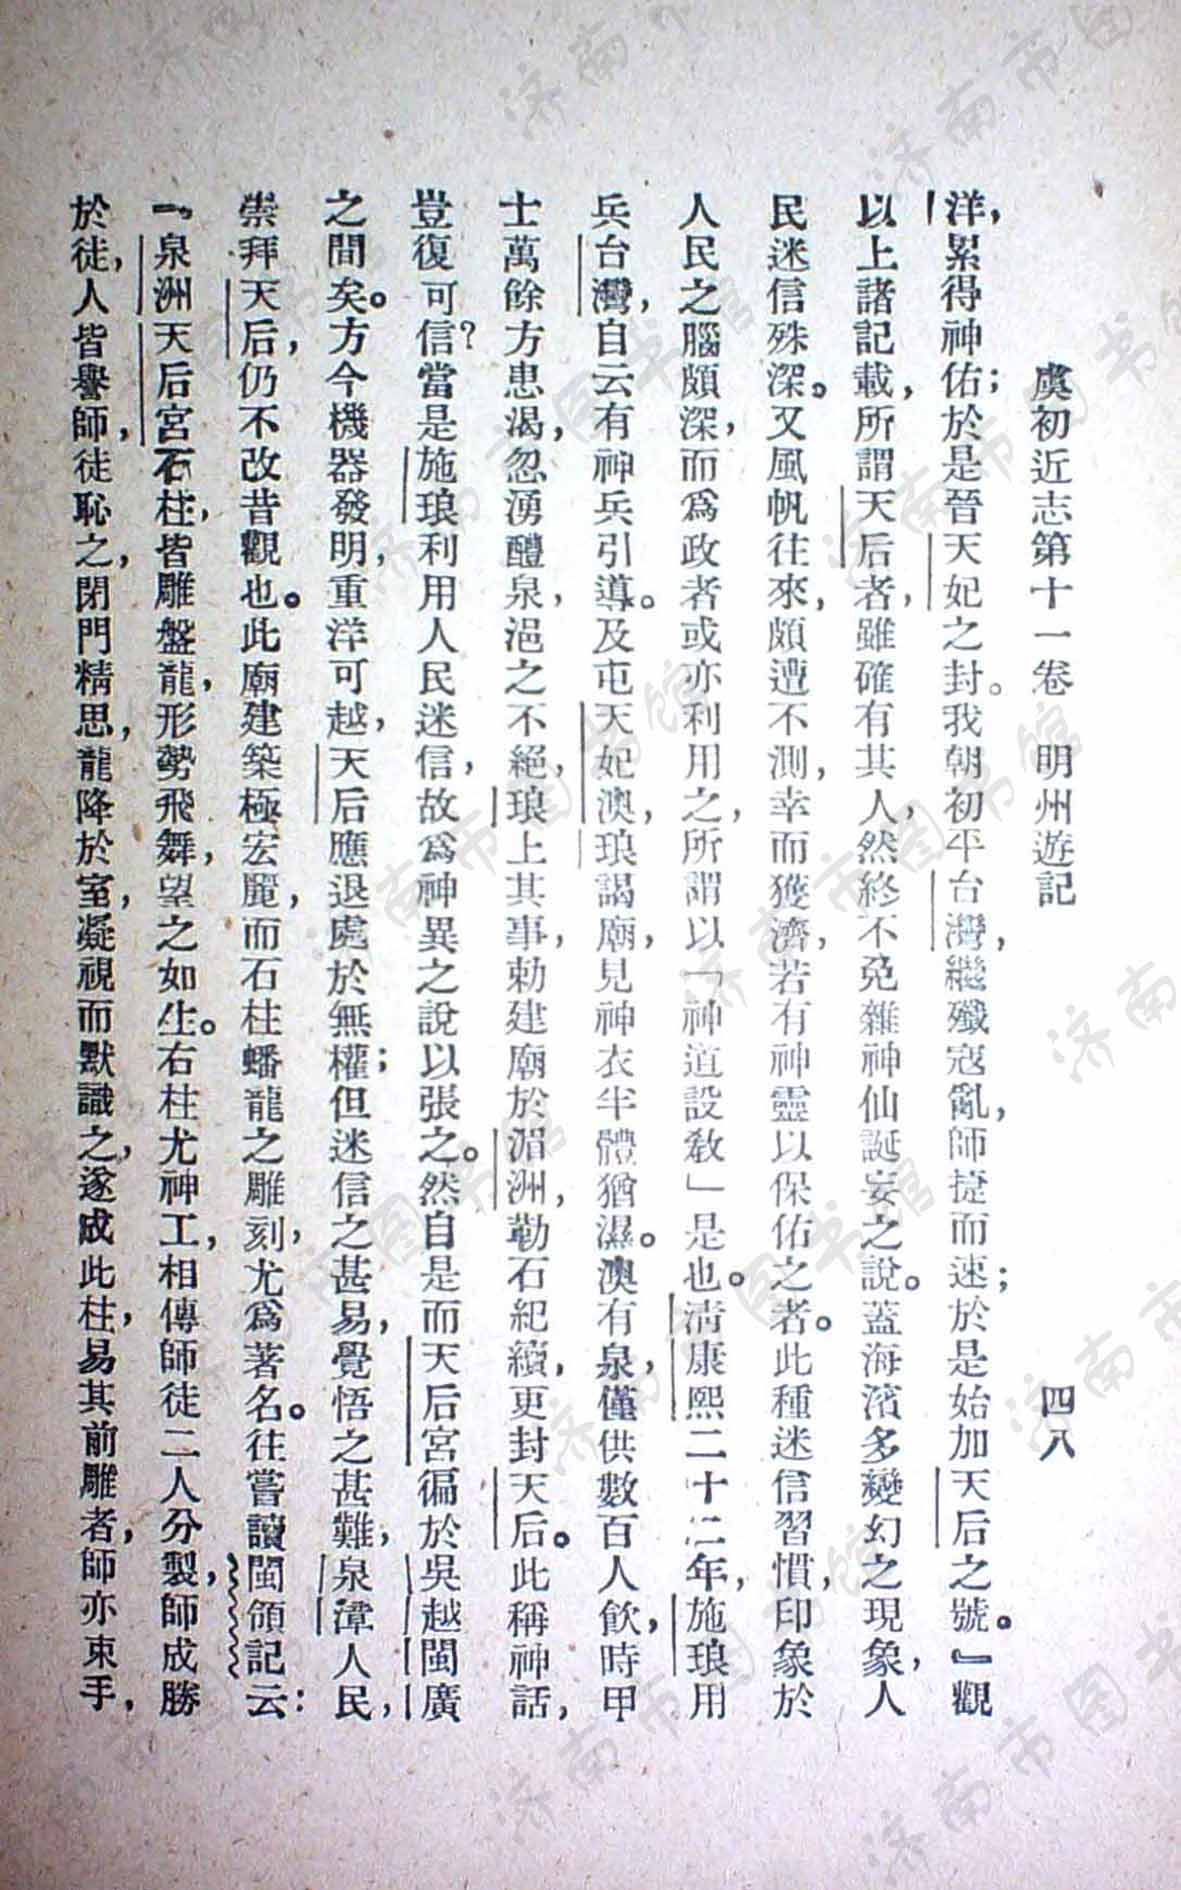 虞初近志第十一卷　明州遊記　四八
洋，累得神佑；於是晉天妃之封。我朝初平台灣，繼殲寇亂，師捷而速；於是始加天后之號。』觀
以上諸記載，所謂天后者，雖確有其人，然終不免雜神仙誕妄之說。蓋海濱多變幻之現象，人
民迷信殊深。又風帆往來，頗遭不測，幸而獲濟，若有神靈以保佑之者。此種迷信習慣，印象於
人民之腦頗深，而爲政者或亦利用之，所謂以「神道設教」是也。清康熙二十二年，施琅用
兵台灣，自云有神兵引導。及屯天妃澳，琅謁廟，見神衣半體猶濕。澳有泉，僅供數百人飲，時甲
士萬餘方患渴，忽湧醴泉，浥之不絕，琅上其事，勅建廟於湄洲，勒石紀績，更封天后。此稱神話，
豈復可信？當是施琅利用人民迷信，故爲神異之說以張之。然自是而天后宮徧於吳越閩廣
之間矣。方今機器發明，重洋可越，天后應退處於無權；但迷信之甚易，覺悟之甚難，泉漳人民，
崇拜天后，仍不改昔觀也。此廟建築極宏麗，而石柱蟠龍之雕刻，尤爲著名。往嘗讀閩頒記云：
『泉洲天后宮石柱，皆雕盤龍，形勢飛舞，望之如生。右柱尤神工，相傳師徒二人分製，師成勝
於徒，人皆譽師，徒恥之，閉門精思，龍降於室，凝視而默識之，遂成此柱，易其前雕者，師亦束手，
济南市图书馆